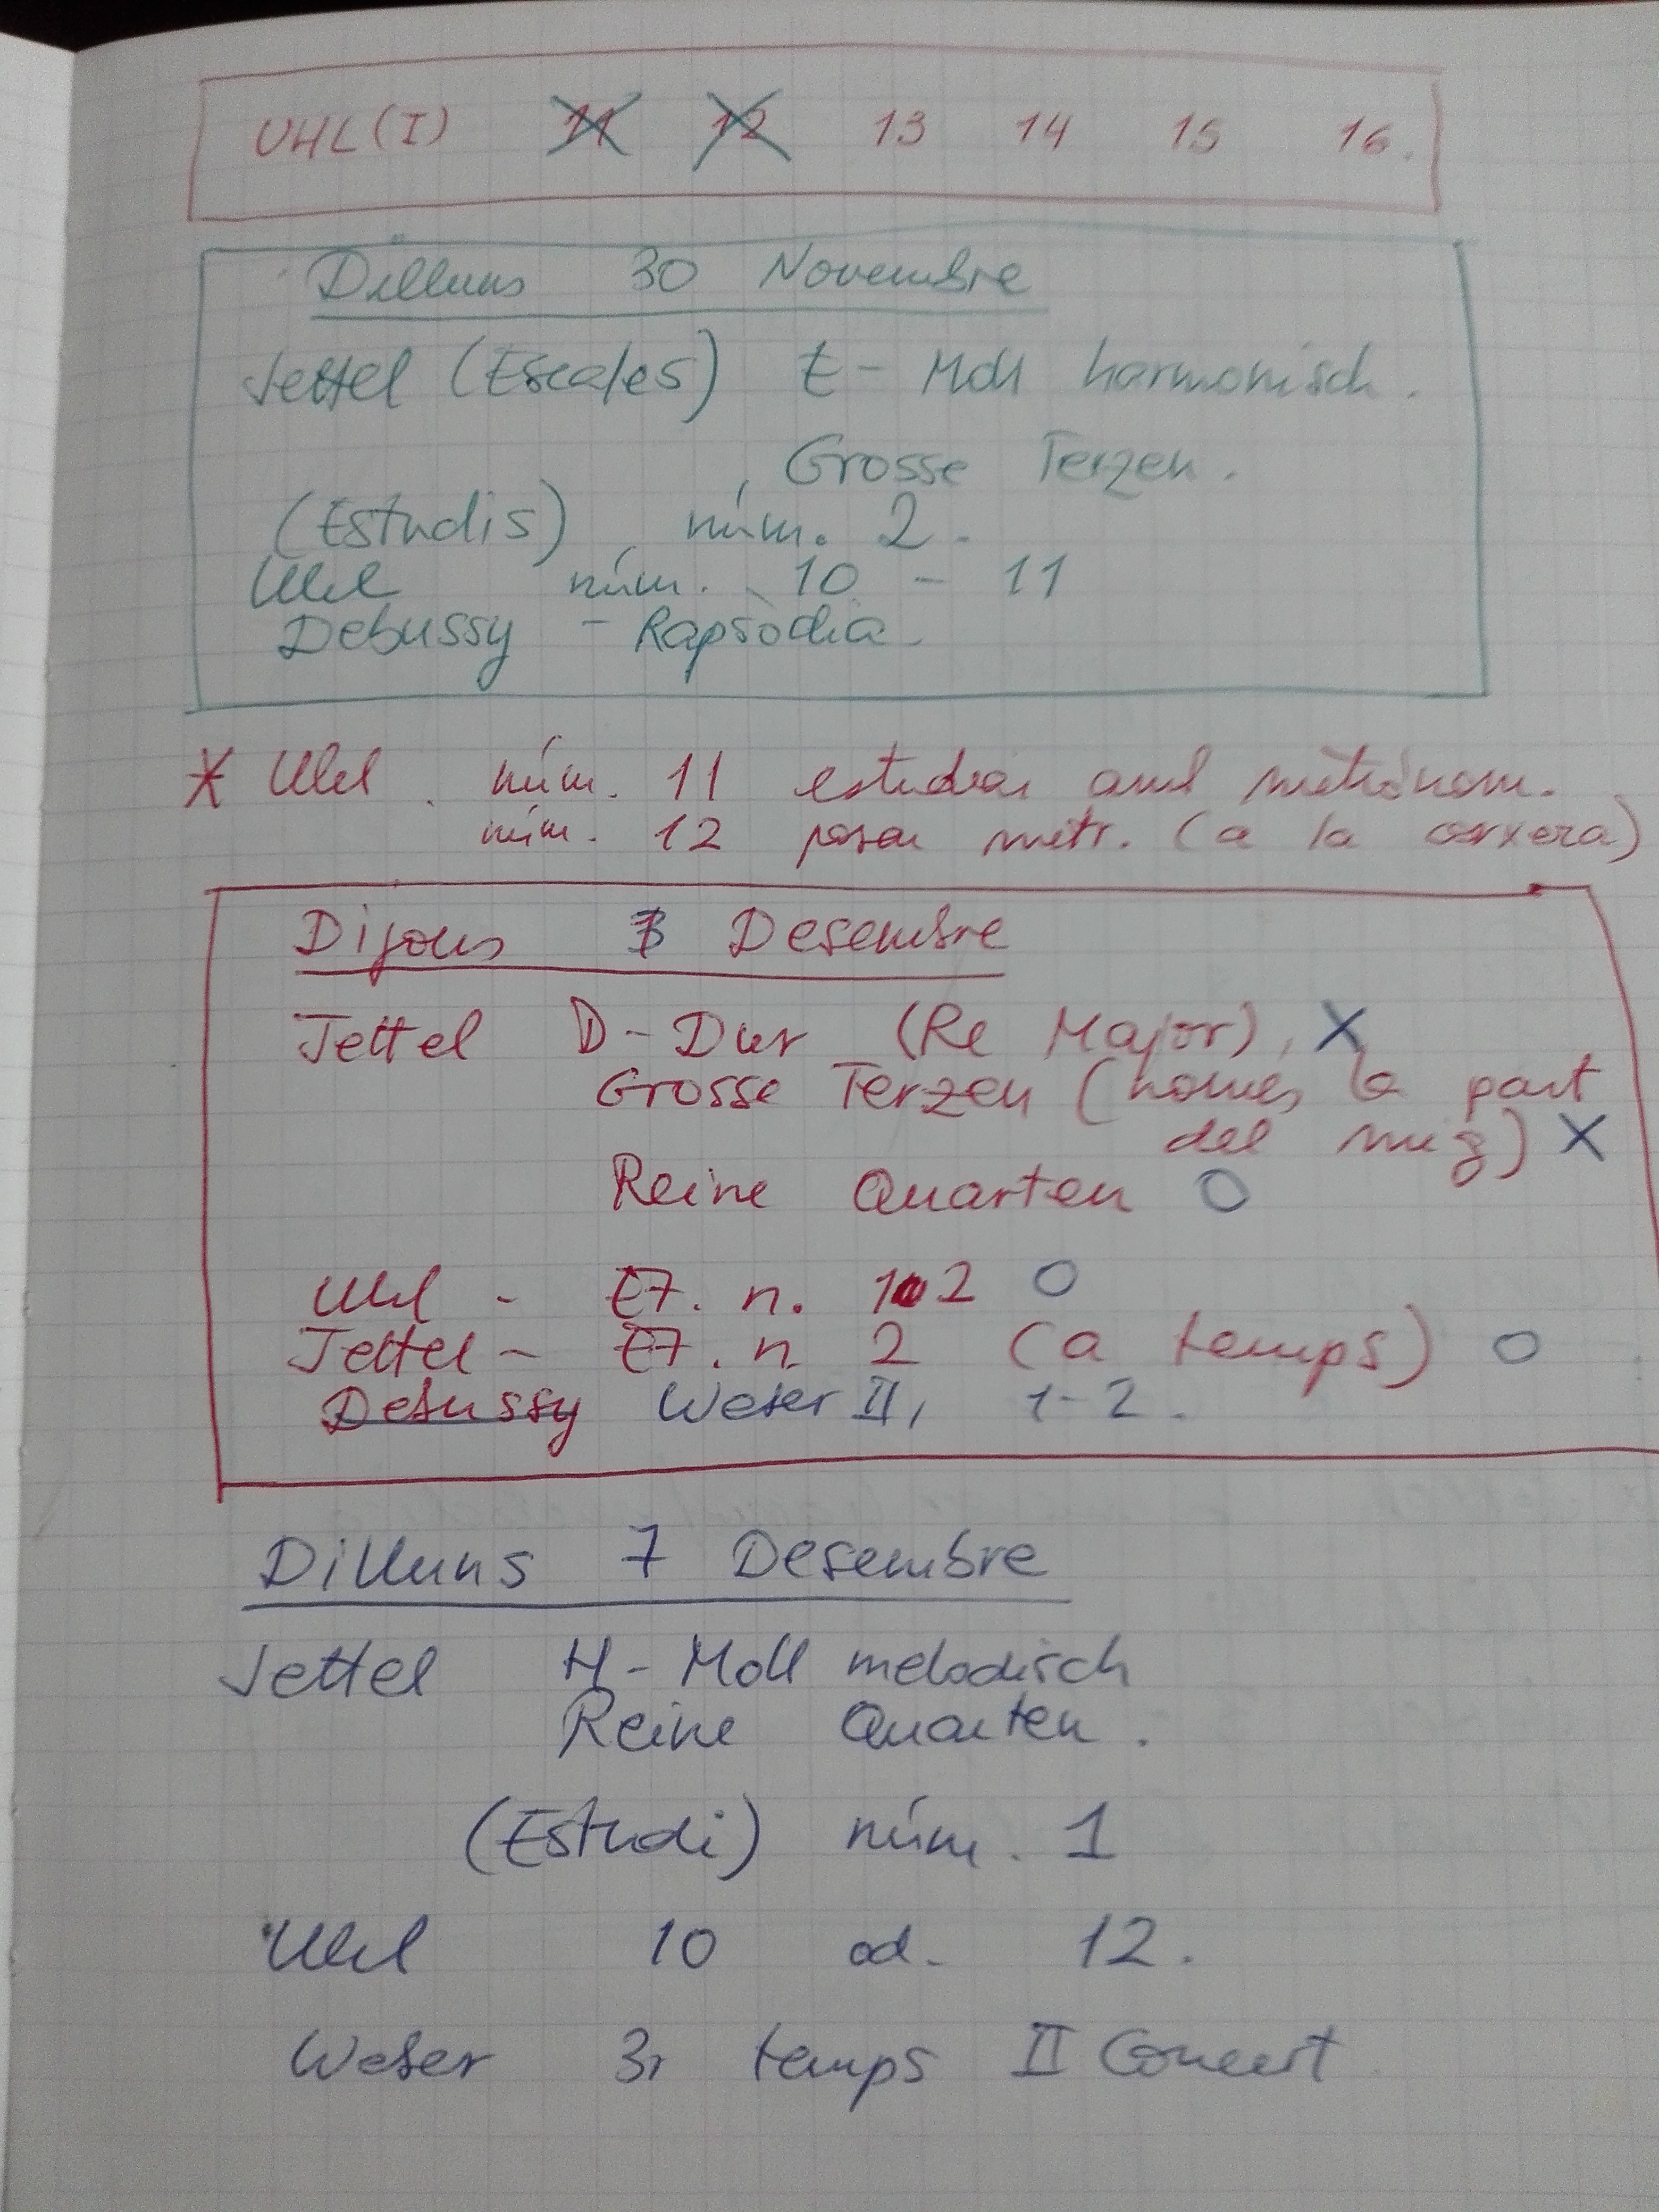 UHL (I) 11 12 13 14 15 16.
Dilluns 30 Novembre
Jettel (Escales) E - Moll harmonisch.
Grosse Terzen.
(Estudis), núm. 2.
Uhl núm. 10 - 11
Debussy - Rapsòdia.
* Uhl. núm. 11 estudiar amb metrònom.
núm. 12 posar metr. (a la corxera)
Dijous 3 Desembre
Jettel D - Dur (Re Major), X
Grosse Terzen (només la part
del mig) X
Reine Quarten O
Uhl - Et. n. 12 O
Jettel - Et. n. 2 (a temps) O
Debussy Weber II, 1-2.
Dilluns 7 Desembre
Jettel H - Moll melodisch
Reine Quarten.
(Estudi) núm. 1
Uhl 10 od. 12.
Weber 3r temps II Concert